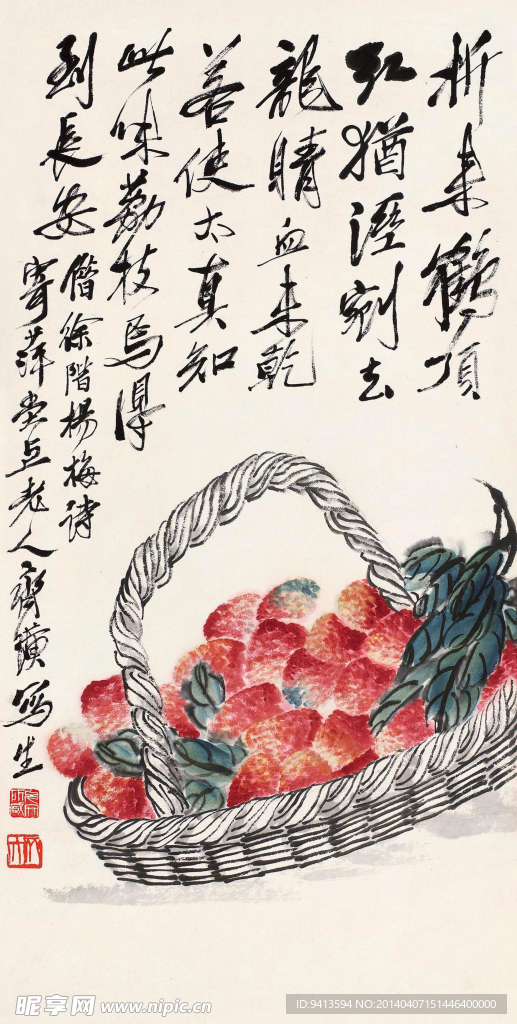 折来鶴頂
紅猶溼剜去
龍睛血未乾
若使太真知
此味荔枝焉得
到長安
借徐階楊梅詩
寄萍堂上老人齊璜寫生
昵享网 www.nipic.cn
ID:9413594 NO:20140407151446400000